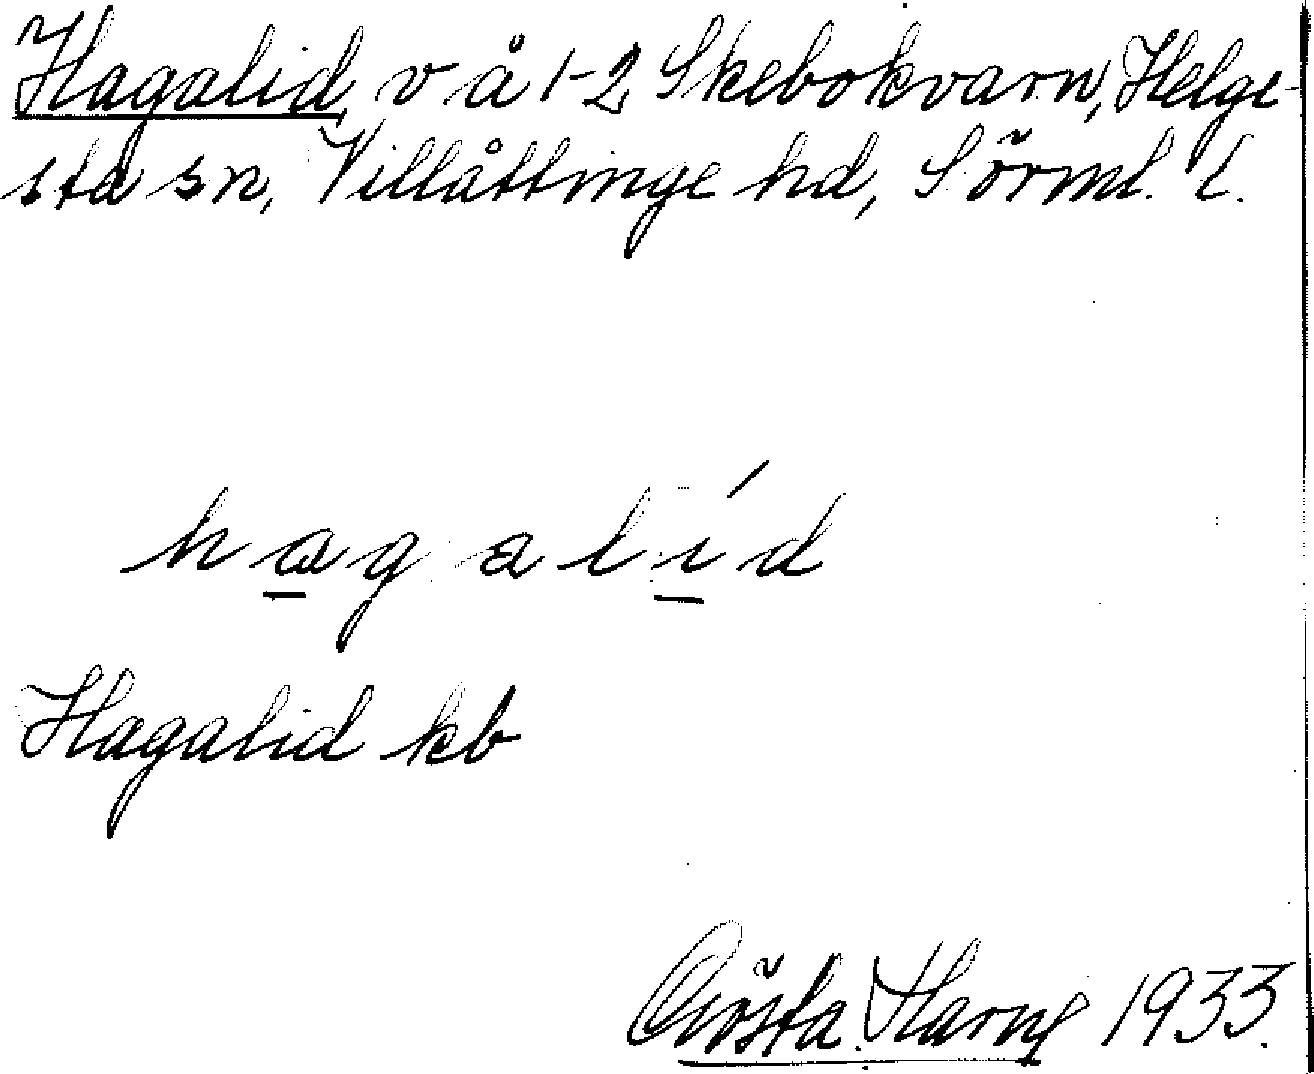 Hagalid, v å 1-2 Skebokvarn, Helge-
sta sn, Villåttinge hd, Sörml. l.
hagalíd
Hagalid kb
Gösta Harne 1933.